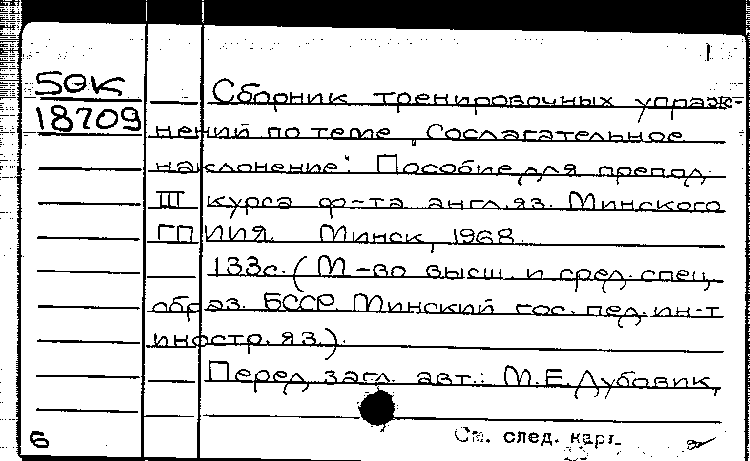 1
5ӨК
18709
Сборник тренировочных упраж-
нений по теме „Сослагательное
наклонение“. Пособие для препод.
III курса ф-та англ.яз. Минского
ГПИИЯ. Минск, 1968.
133с. (М-во высш. и сред. спец.
образ. БССР. Минский гос. пед. ин-т
иностр. яз.).
Перед загл. авт.: М.Е. Дубовик,
См. след. карт.
6